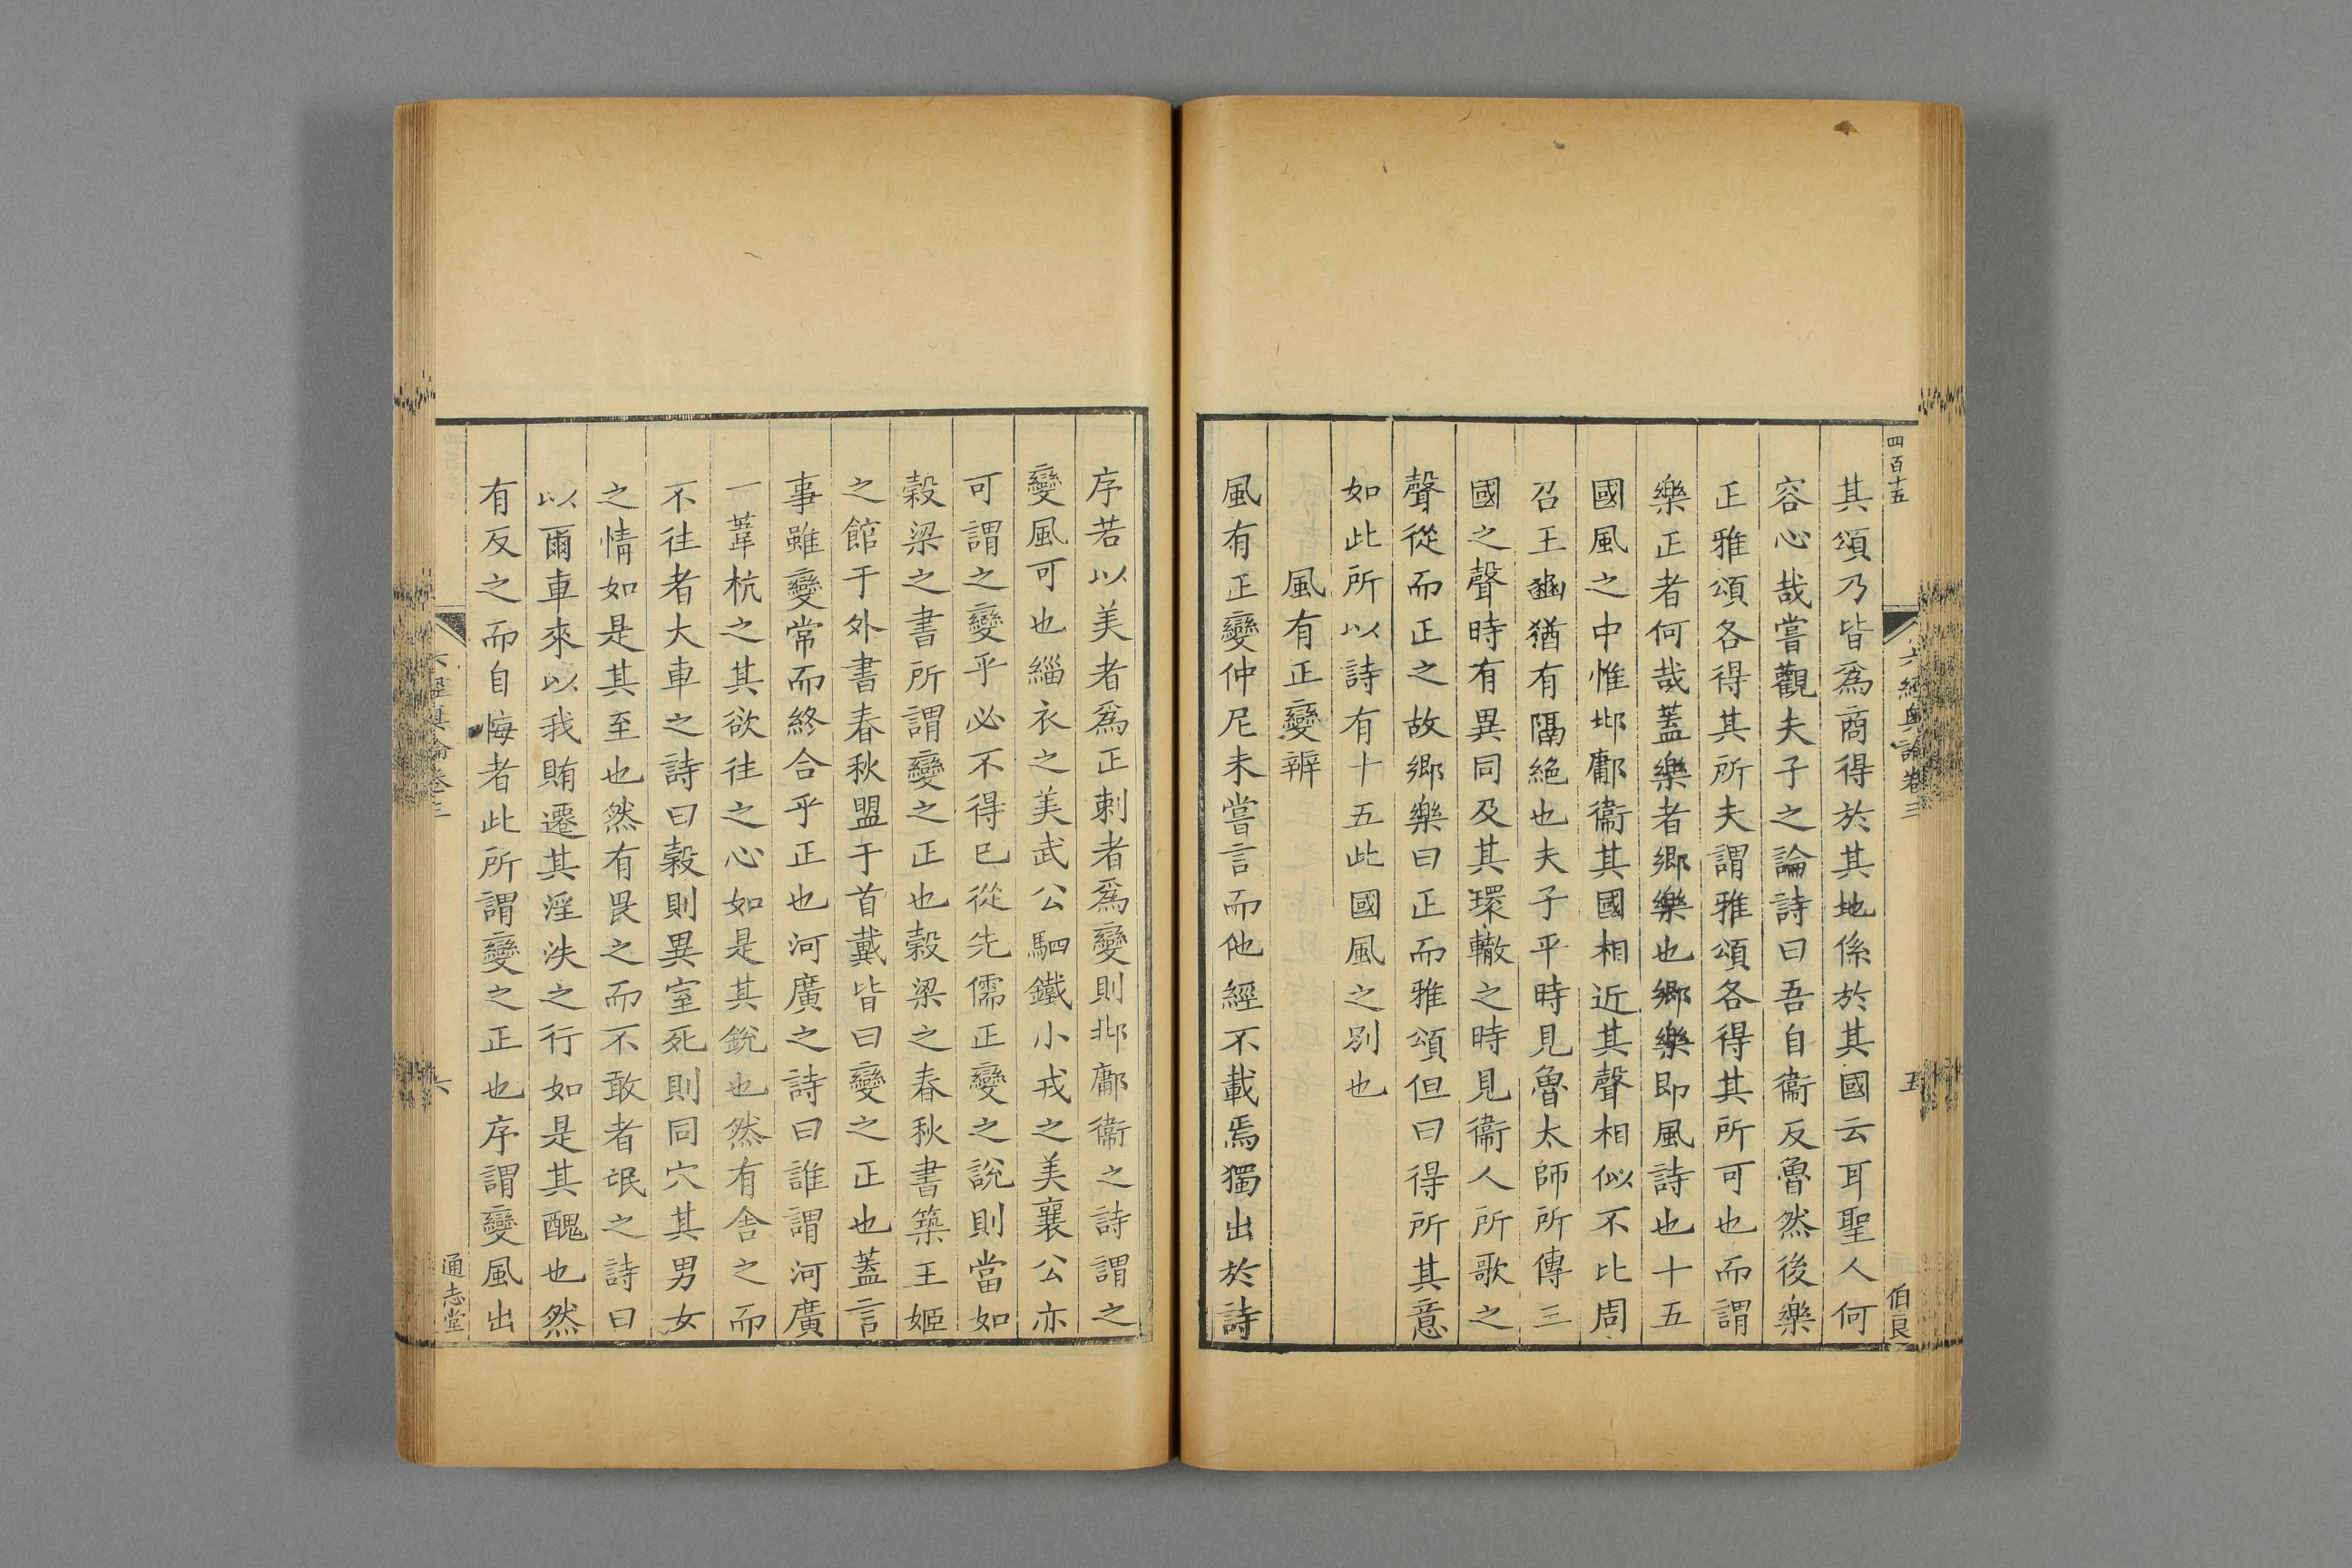 四百十五
六經奧論卷三
五
伯良
其頌乃皆爲商得於其地係於其國云耳聖人何
容心哉嘗觀夫子之論詩曰吾自衞反魯然後樂
正雅頌各得其所夫謂雅頌各得其所可也而謂
樂正者何哉蓋樂者鄉樂也鄉樂即風詩也十五
國風之中惟邶鄘衞其國相近其聲相似不比周
召王豳猶有隔絶也夫子平時見魯太師所傳三
國之聲時有異同及其環轍之時見衞人所歌之
聲從而正之故鄉樂曰正而雅頌但曰得所其意
如此所以詩有十五此國風之別也
風有正變辨
風有正變仲尼未嘗言而他經不載焉獨出於詩
序若以美者爲正刺者爲變則邶鄘衞之詩謂之
變風可也緇衣之美武公駟鐵小戎之美襄公亦
可謂之變乎必不得已從先儒正變之說則當如
穀梁之書所謂變之正也穀梁之春秋書築王姬
之館于外書春秋盟于首戴皆曰變之正也蓋言
事雖變常而終合乎正也河廣之詩曰誰謂河廣
一葦杭之其欲往之心如是其銳也然有舍之而
不往者大車之詩曰穀則異室死則同穴其男女
之情如是其至也然有畏之而不敢者氓之詩曰
以爾車來以我賄遷其淫泆之行如是其醜也然
有反之而自悔者此所謂變之正也序謂變風出
六經奧論卷三
六
通志堂